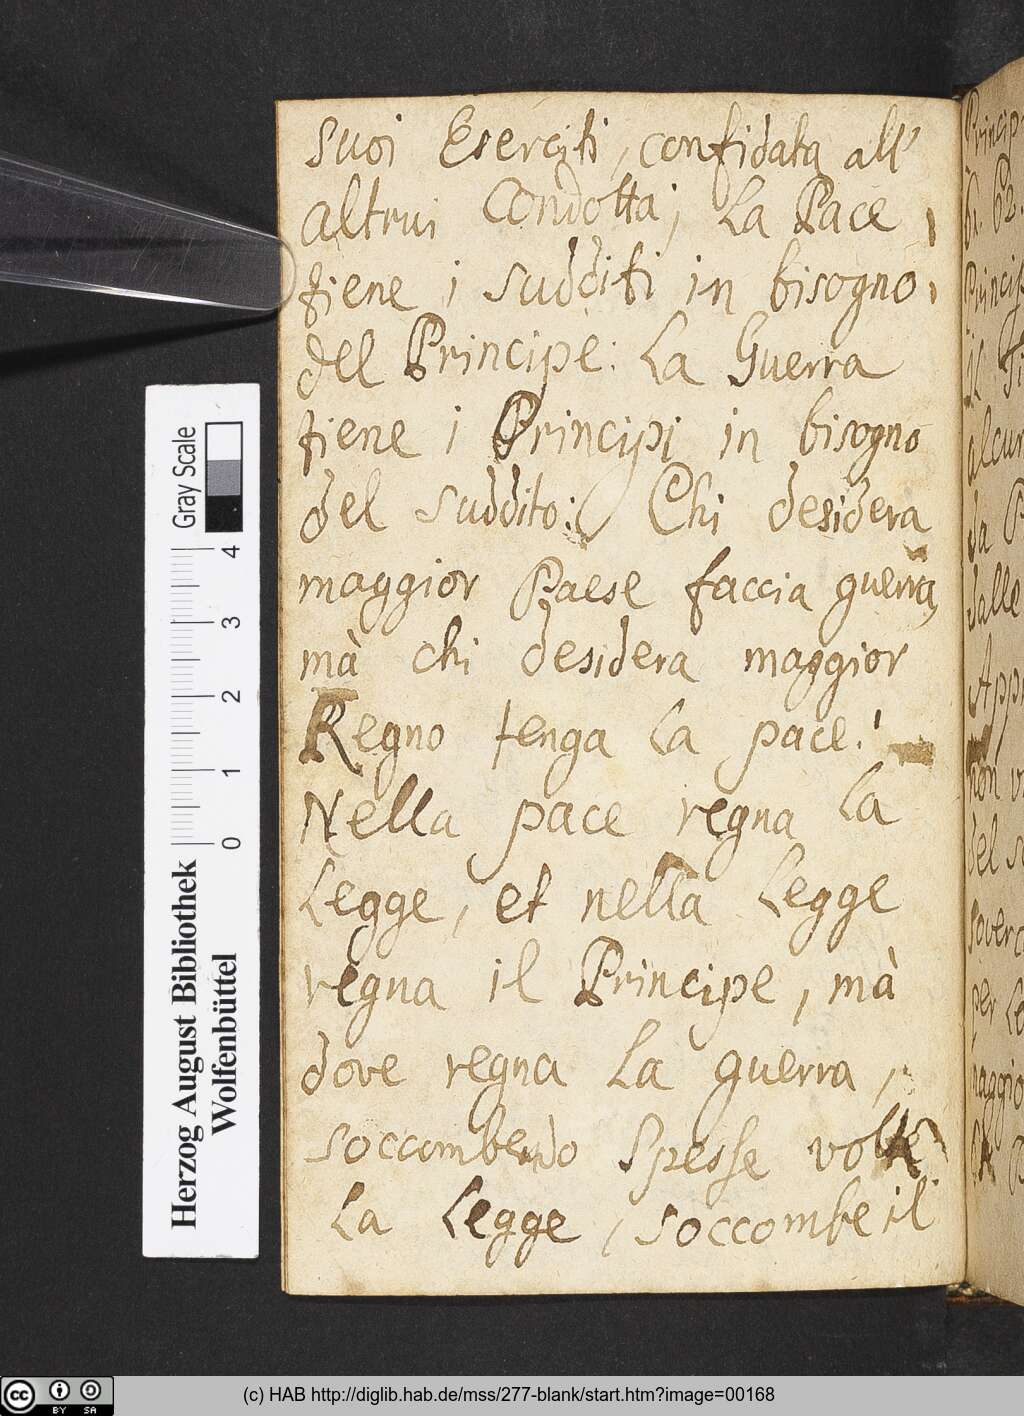 suoi Eserciti, confidata all'
altrui Condotta; La Pace,
tiene i sudditi in bisogno,
del Principe: La Guerra
tiene i Principi in bisogno
del suddito: Chi desidera
maggior Paese faccia guerra,
mà chi desidera maggior
Regno tenga la pace!
Nella pace regna la
Legge, et nella Legge
regna il Principe, mà
dove regna la guerra,
soccombendo spesse volte
La Legge, soccombe il
Gray Scale
4
3
2
1
0
Herzog August Bibliothek
Wolfenbüttel
cc BY SA
(c) HAB http://diglib.hab.de/mss/277-blank/start.htm?image=00168